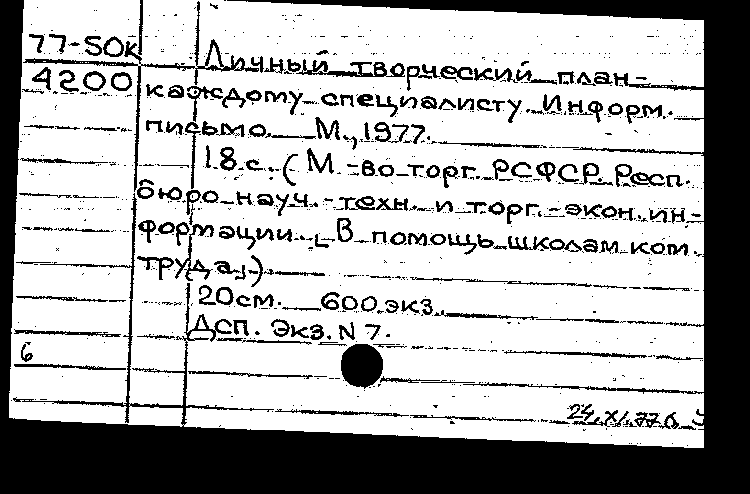 77-50к
4200
Личный творческий план-
каждому специалисту. Информ.
письмо. М., 1977.
18 с. (М-во торг. РСФСР. Респ.
бюро науч.-техн. и торг.-экон. ин-
формации. [В помощь школам ком.
труда]).
20см. 600 экз.
ДСП. Экз. N 7.
6
24.XI.77б